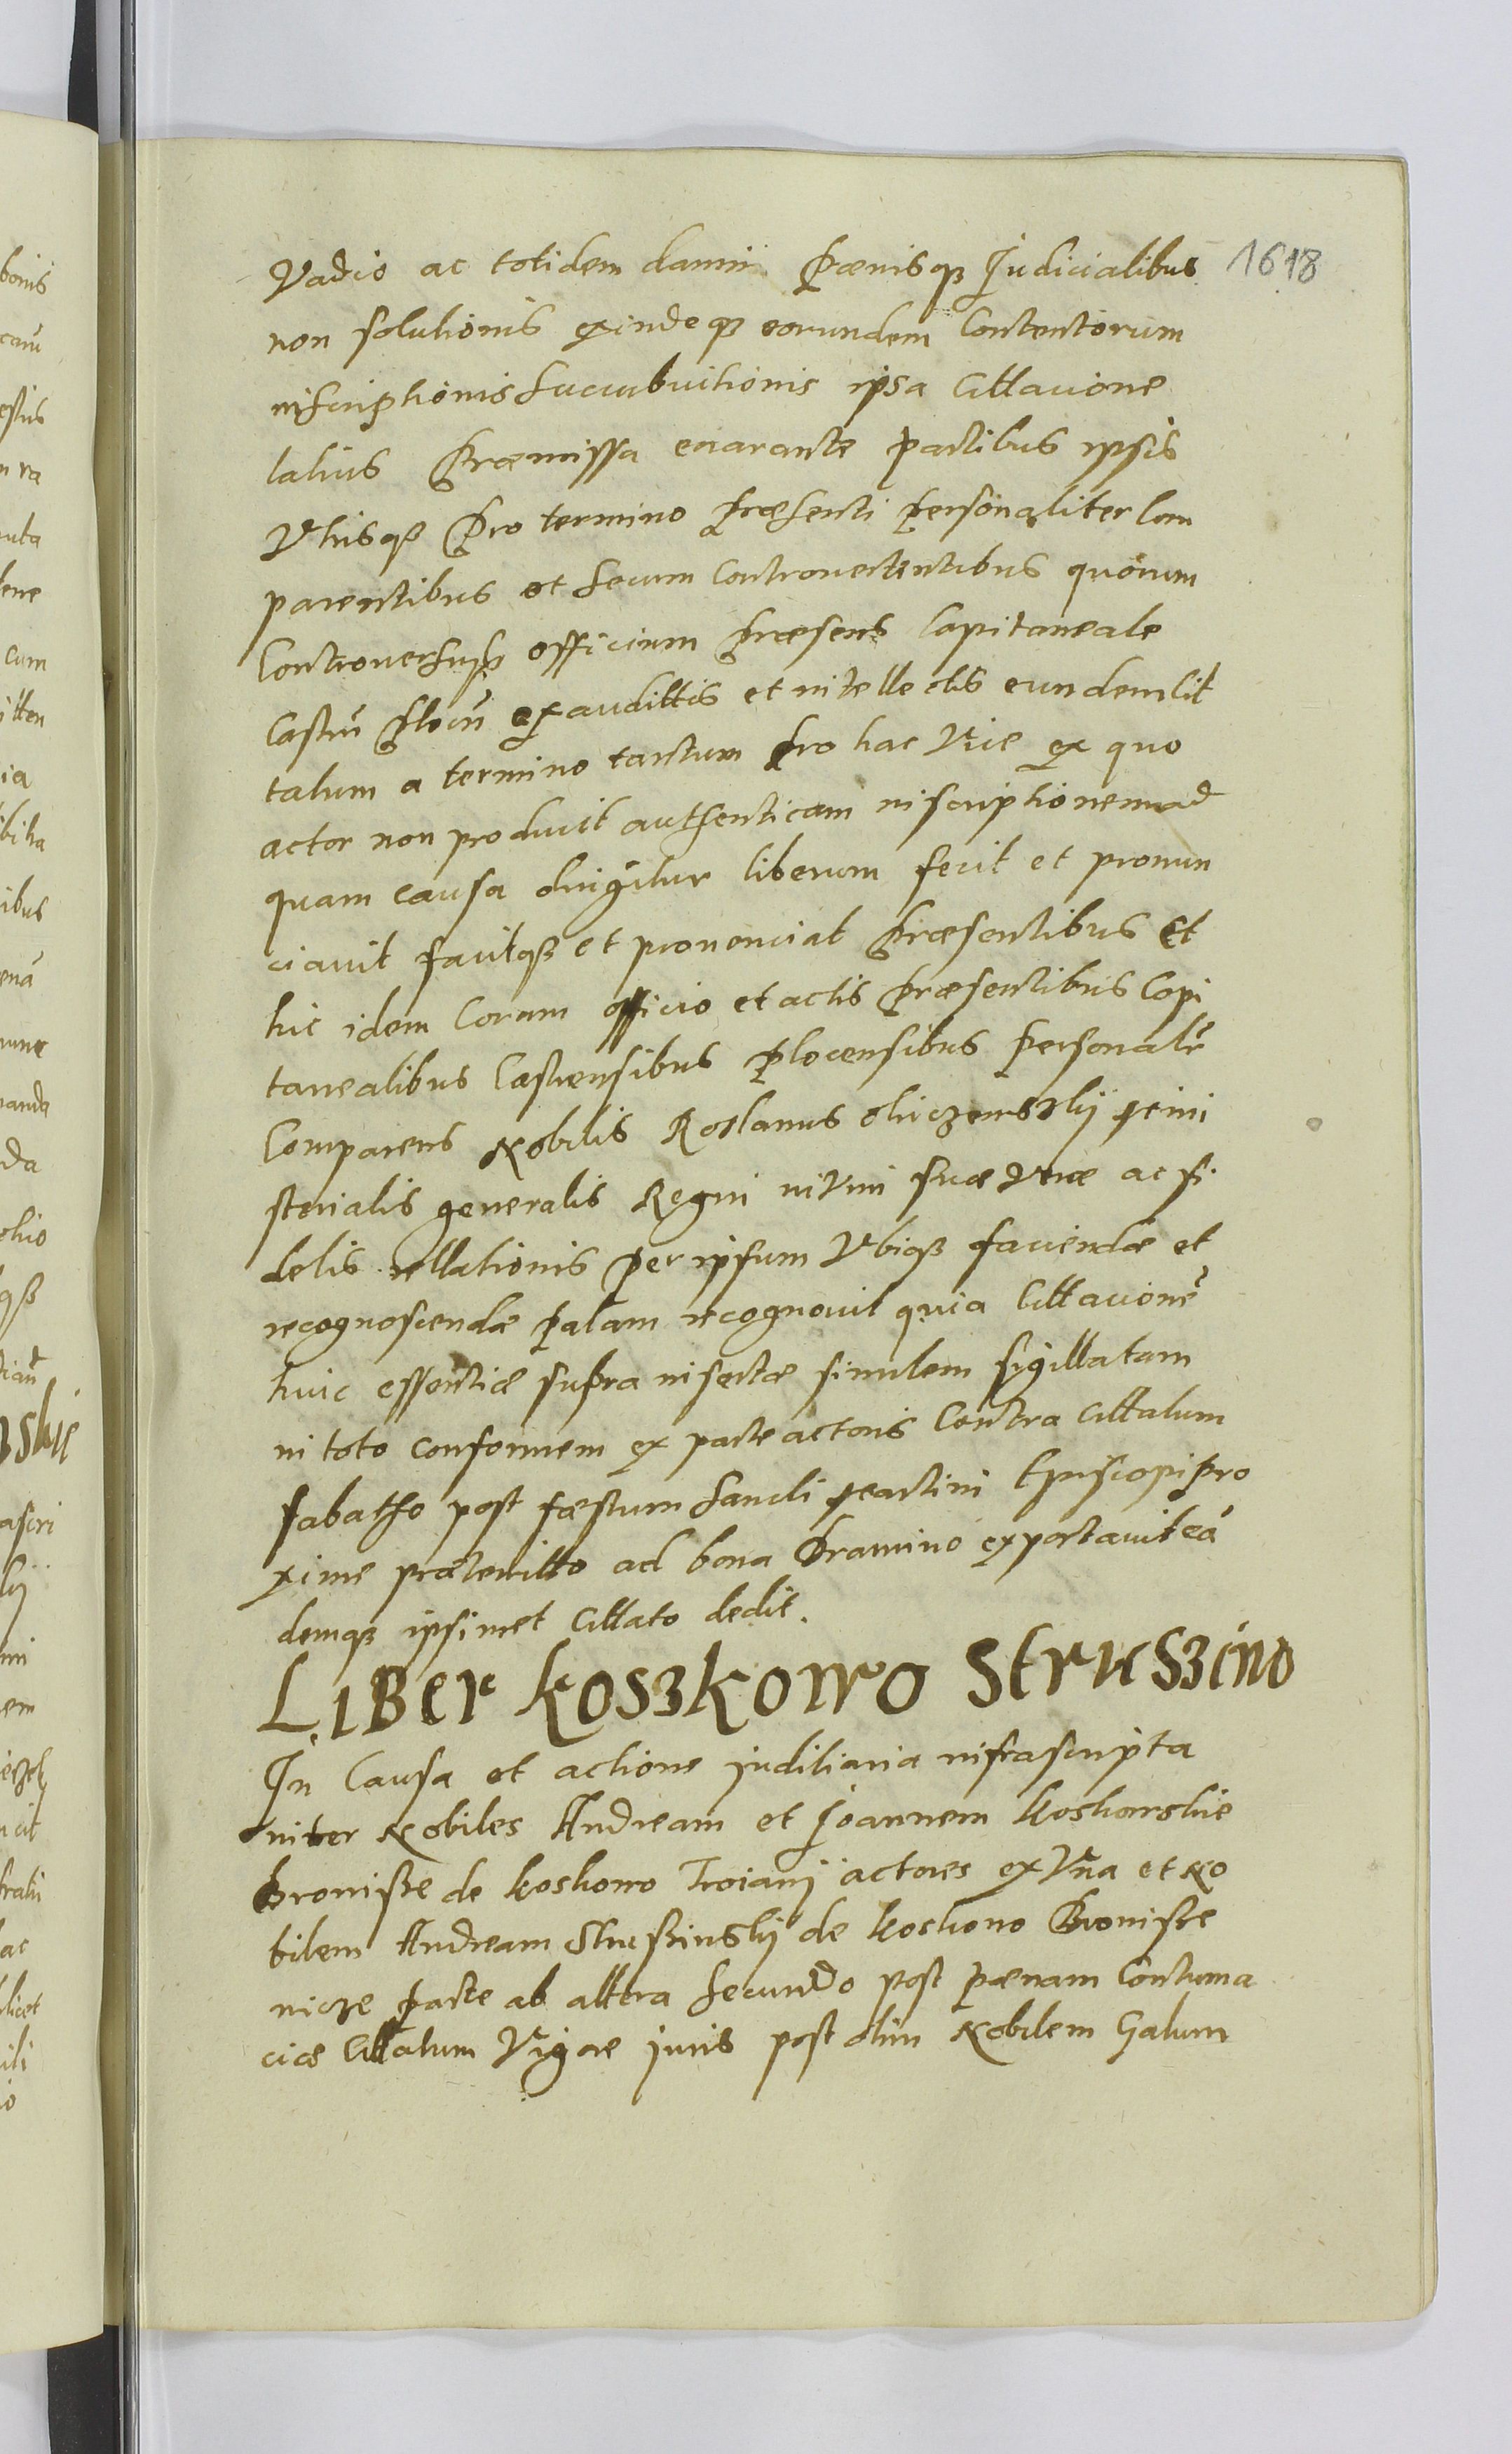 Vadio ac totidem damni pœnisqȝ Judicialibus 1618
non solutionis exindeqȝ eorundem Contentorum
inscriptionis succubuitionis ipsa Cittacione
latius præmissa enarante partibus ipsis
Vtrisqȝ pro termino præsenti personaliter Com
parentibus et secum Controvertentibus quorum
Controversiis officium præsens Capitaneale
Castrē Plocē exaudittis et intellectis eundem Cit
tatum a termino tantum pro hac Vice ex quo
actor non produxit authenticam inscriptionem ad
quam causa dirigitur liberum fecit et pronun
ciavit facitqȝ et pronunciat præsentibus Et
hic idem Coram officio et actis præsentibus Capi
tanealibus Castrensibus Plocensibus personalr
Comparens Nobilis Roslanus mini
sterialis generalis Regni in Vim suæ Veræ ac fi
delis rellationis per ipsum Vbiqȝ faciendæ et
recognoscendæ palam recognovit quia Cittacionē
huic essentiæ supra insertæ similem sigillatam
in toto conformem ex parte actoris Contra Cittatum
sabatho post fæstum Sancti Martini Episcopi pro
xime præteritto ad bona Dramino exportavit eā
demqȝ ipsimet Cittato dedit.
Liber Koszkowo Struszino
In Causa et actione judiliaria infrascripta
inter Nobiles Andream et Joannem Koskowskie
Bronisze de Koskowo Troiany actores ex Vna et No
bilem Andream Struszinsky de Koskowo Bronisze
nicze parte ab altera secundo post pœnam Contuma
ciæ Cittatum Vigore juris post olim Nobilem Galum